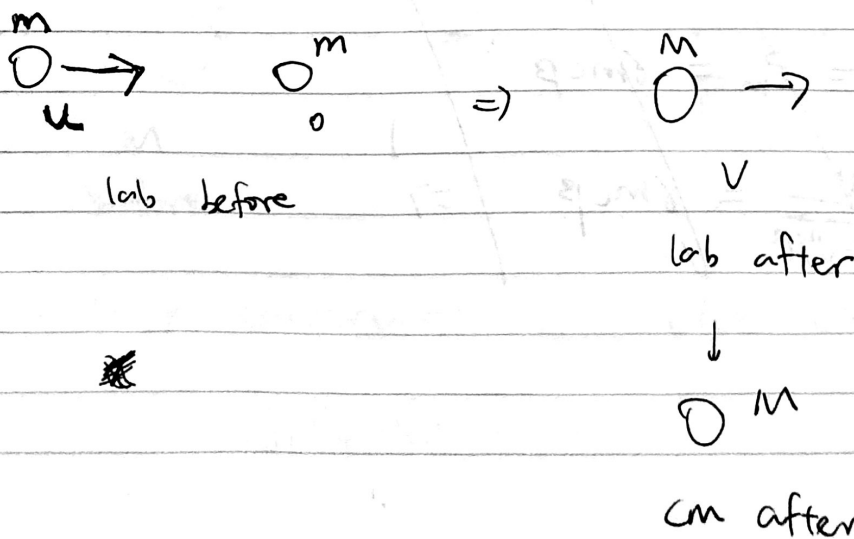 m
m
M
u
o
=>
V
lab before
lab after
M
cm after